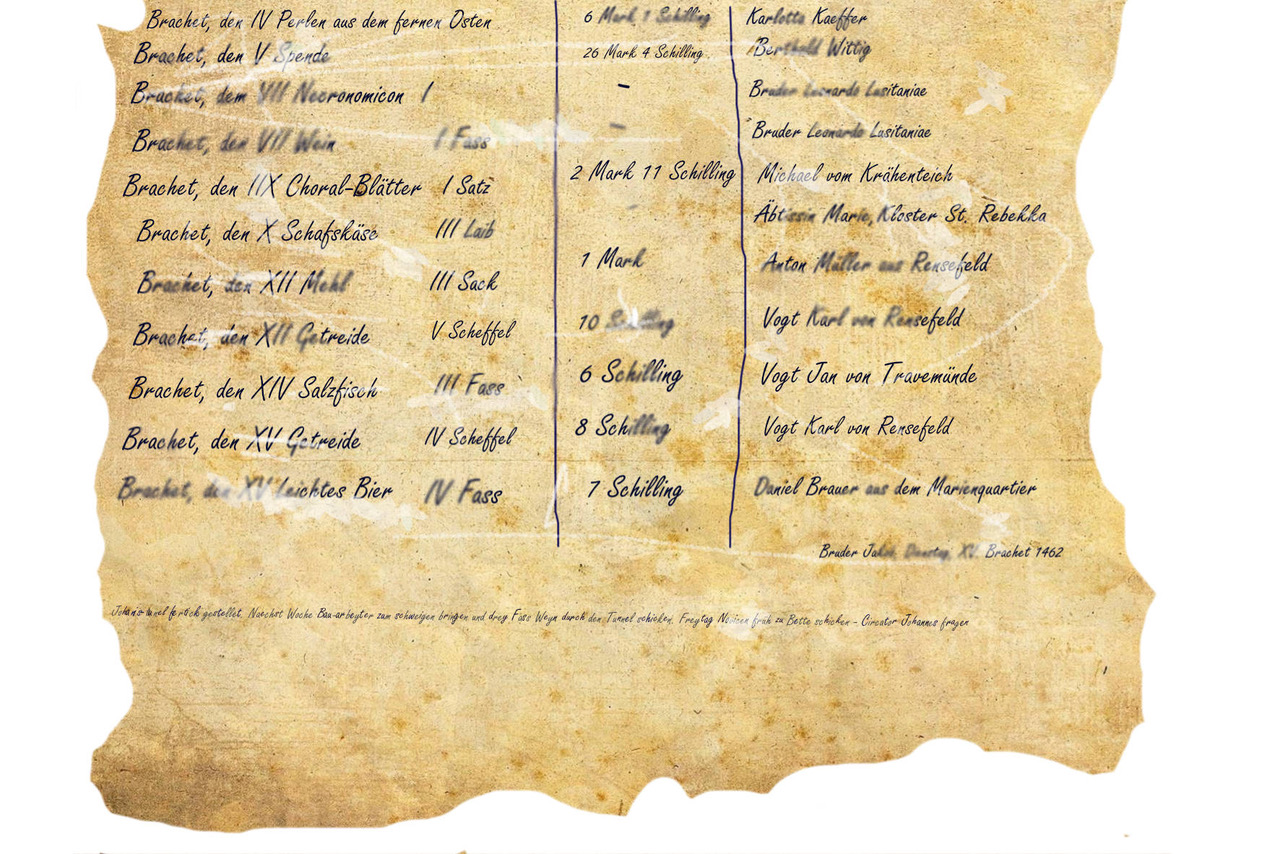 Brachet, den IV Perlen aus dem fernen Osten 6 Mark 1 Schilling Karlotta Kaeffer
Brachet, den V Spende 26 Mark 4 Schilling Berthold Wittig
Brachet, dem VII Necronomicon I – Bruder Leonardo Lusitaniae
Brachet, den VII Wein I Fass – Bruder Leonardo Lusitaniae
Brachet, den IIX Choral-Blätter I Satz 2 Mark 11 Schilling Michael vom Krähenteich
Brachet, den X Schafskäse III Laib – Äbtissin Marie, Kloster St. Rebekka
Brachet, den XII Mehl III Sack 1 Mark Anton Müller aus Rensefeld
Brachet, den XII Getreide V Scheffel 10 Schilling Vogt Karl von Rensefeld
Brachet, den XIV Salzfisch III Fass 6 Schilling Vogt Jan von Travemünde
Brachet, den XV Getreide IV Scheffel 8 Schilling Vogt Karl von Rensefeld
Brachet, den XV Leichtes Bier IV Fass 7 Schilling Daniel Brauer aus dem Marienquartier
Bruder Jakob, Dienstag, XV. Brachet 1462
fertick gestellet. Naechst Woche Bau-arbeyter zum schweigen bringen und drey Fass Weyn durch den Tunnel schicken. Freytag Novizen früh zu Bette schicken - Circator Johannes fragen